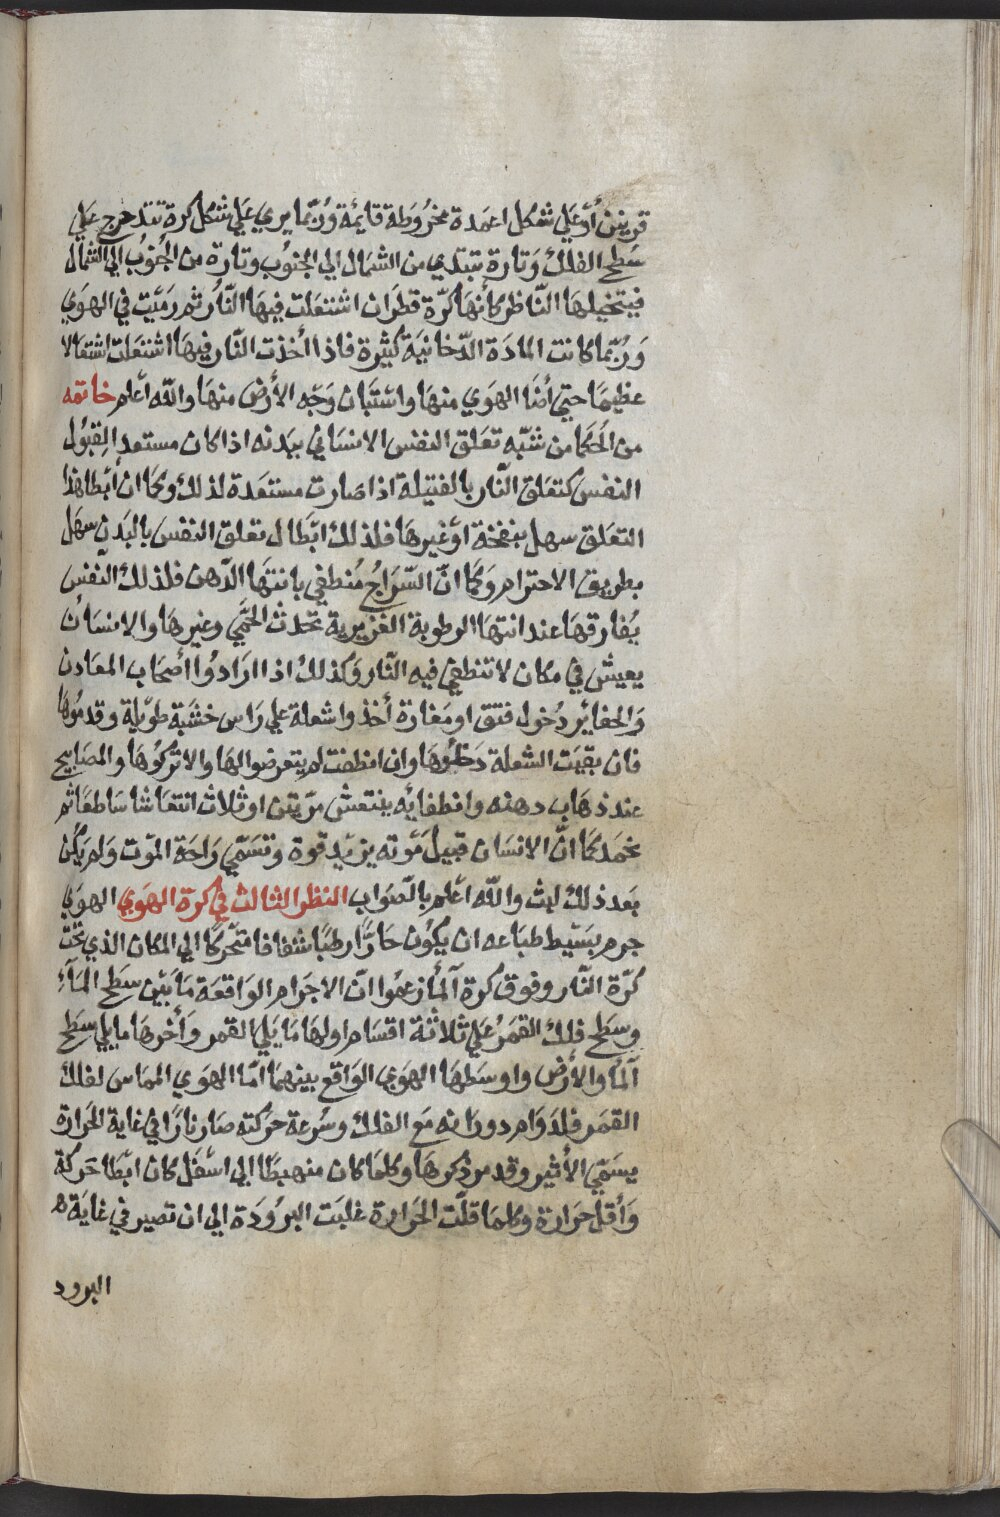 قرنين أو علي شكل اعمدة مخروطة قايمة وربما يري علي شكل كرة تتدحرج علي
سطح الفلك وتارة تبتدي من الشمال الي الجنوب وتارة من الجنوب الي الشمال
فيتخيلها الناظر كأنها كرة قطران اشتعلت فيها النار ثم رميت في الهوي
وربما كانت المادة الدخانية كثيرة فاذا أخذت النار فيها اشتعلت اشتعالا
عظيما حتي أضا الهوي منها واستبان وجه الأرض منها والله أعلم خاتمه
من الحكما من شبه تعلق النفس الانساني ببدنه اذا كان مستعدا لقبول
النفس كتعلق النار بالفتيلة اذا صارت مستعدة لذلك وكما ان أبطا هذا
التعلق سهل بنفخة أو غيرها فلذلك ابطال تعلق النفس بالبدن سهل
بطريق الاحترام وكما ان السراج منطفي بانتها الدهن فلذلك النفس
يفارقها عند انتها الرطوبة الغزيرية تحدث الحمي وغيرها والانسان
يعيش في مكان لا تنطفي فيه النار وكذلك اذا ارادوا أصحاب المعادن
والحفاير دخول فتق او مغارة أخذوا شعلة علي راس خشبة طويلة وقدموها
فان بقيت الشعلة دخلوها وان انطفت لم يتعرضوا لها والا تركوها والمصابيح
عند ذهاب دهنه وانطفايه ينتعش مرتين او ثلاث انتعاشا ساطعا ثم
يخمد كما ان الانسان قبيل موته يزيد قوة وتسمي راحة الموت ولم يكن
بعد ذلك لبث والله أعلم بالصواب النظر الثالث في كرة الهوي الهوي
جرم بسيط طباعه ان يكون حارا رطبا شفافا متحركا الي المكان الذي تحت
كرة النار وفوق كرة ألمأ زعموا ان الاجرام الواقعة ما بين سطح المآء
وسطح فلك القمر علي ثلاثة اقسام اولها ما يلي القمر وأخرها ما يلي سطح
ألمأ والأرض واوسطها الهوي الواقع بينهما امّا الهوي المماس لفلك
القمر فلدوام دورانه مع الفلك وسرعة حركته صار نارا في غاية الحرارة
يسمي الأثير وقد مر ذكرها وكلما كان منهبطا الي اسفل كان ابطا حركة
وأقل حرارة وكلما قلت الحرارة غلبت البرودة الي ان تصير في غاية
البرود